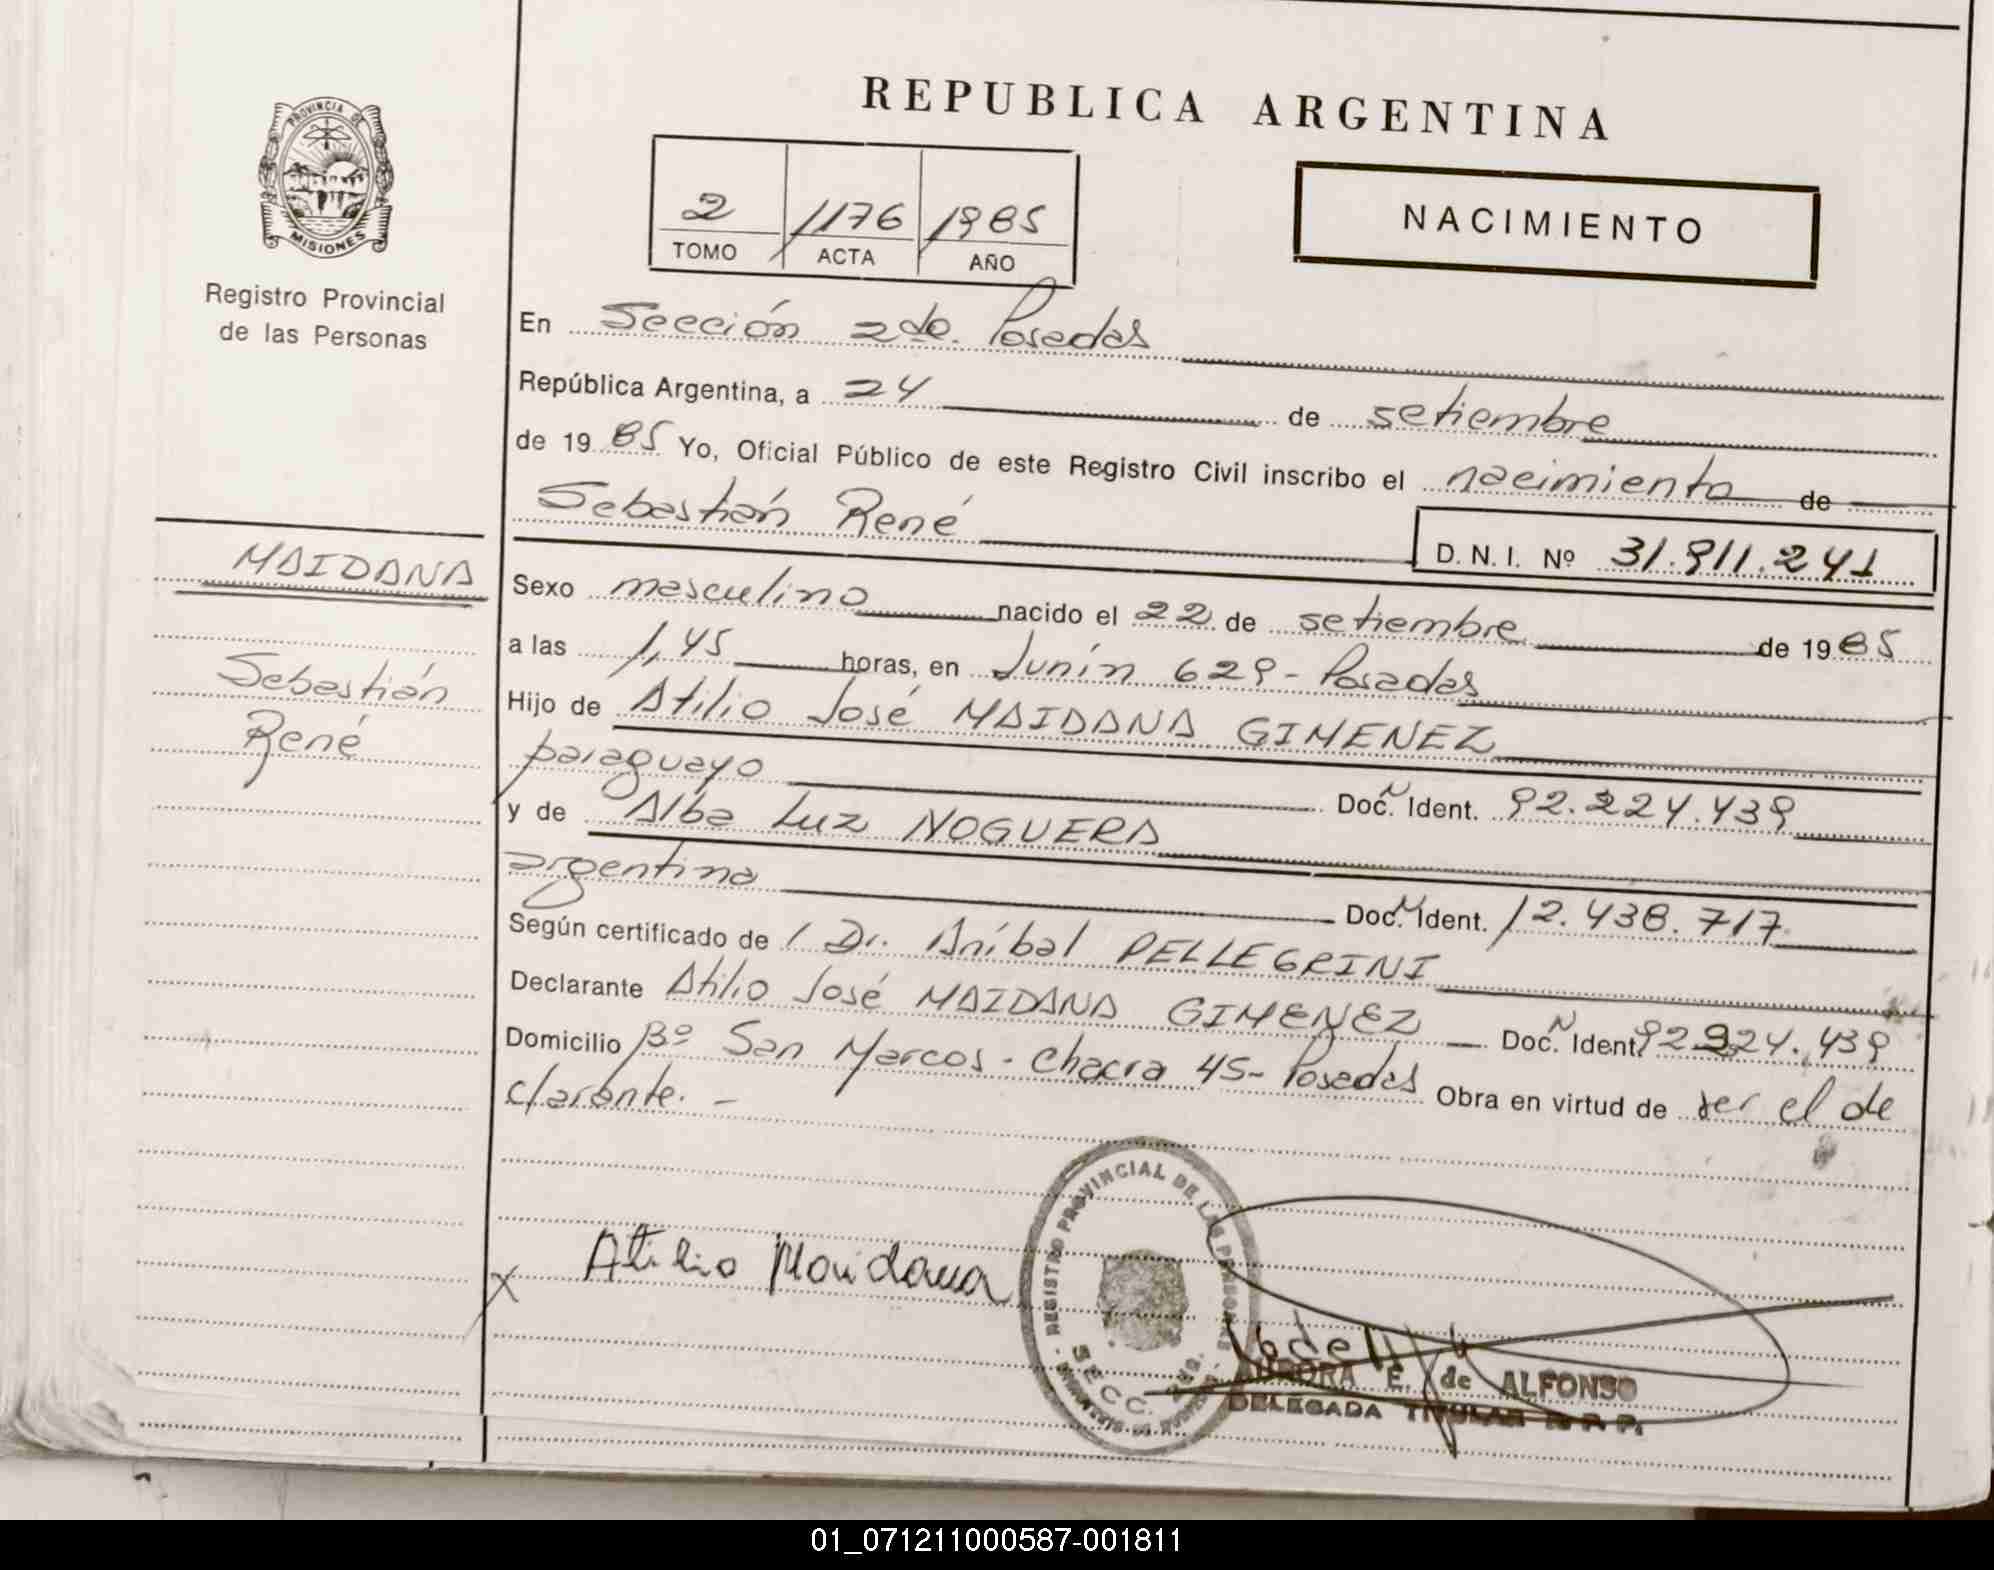 PROVINCIA DE
MISIONES
Registro Provincial
de las Personas
REPUBLICA ARGENTINA
2 1176 1985
TOMO ACTA AÑO
NACIMIENTO
En Sección 2da. Posadas
República Argentina, a 24 de setiembre
de 1985 Yo, Oficial Público de este Registro Civil inscribo el nacimiento de
Sebastián René
D. N. I. Nº 31.911.241
MAIDANA
Sebastián
René
Sexo masculino nacido el 22 de setiembre de 1985
a las 1,45 horas, en Junín 629 - Posadas
Hijo de Atilio José MAIDANA GIMENEZ
paraguayo Doc. Ident. 92.224.439
y de Alba Luz NOGUERA
argentina Doc. Ident. 12.438.717
Según certificado de / Dr. Aníbal PELLEGRINI
Declarante Atilio José MAIDANA GIMENEZ Doc. Ident. 92224.439
Domicilio Bº San Marcos - Chacra 45 - Posadas Obra en virtud de ser el de
clarante. -
X Atilio Maidana
REGISTRO PROVINCIAL DE LAS PERSONAS
SECC.
AURORA E. de ALFONSO
DELEGADA TITULAR R. P. P.
01_071211000587-001811